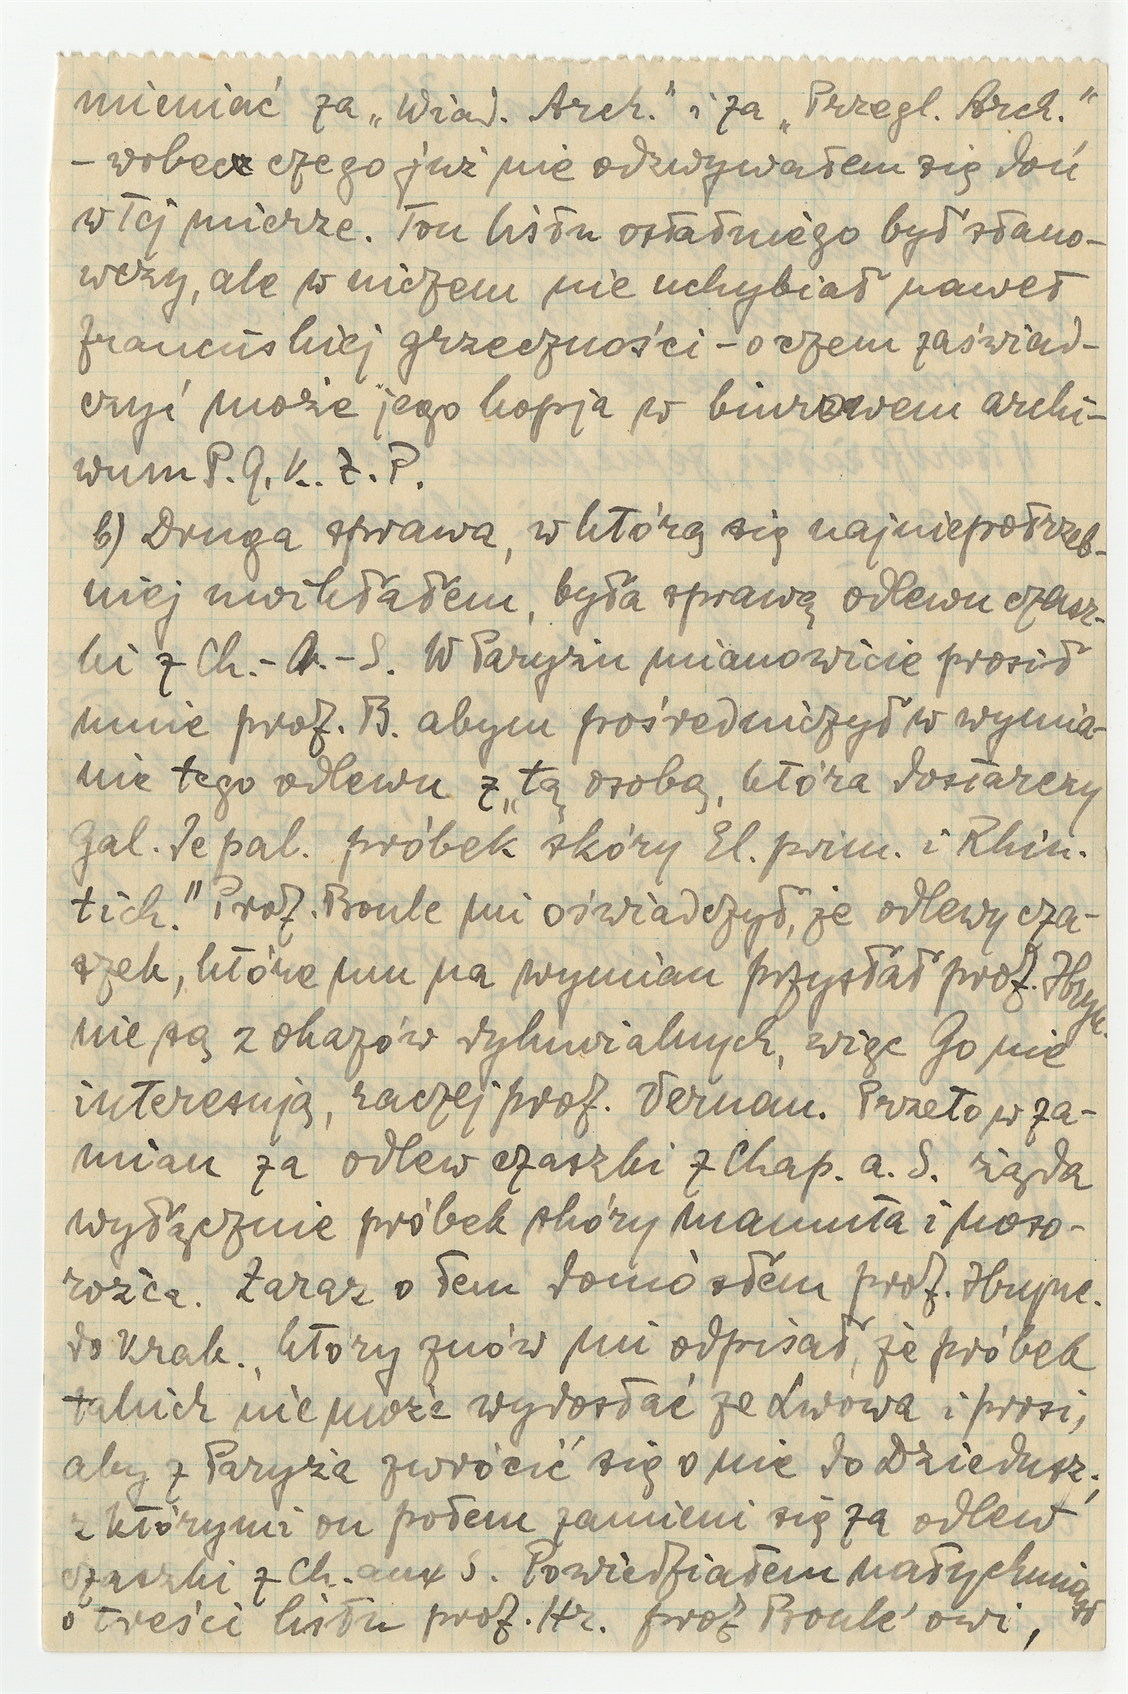 mieniać za „Wiad. Arch.” i za „Przegl. Arch.”
– wobec czego już nie odzywałem się doń
w tej mierze. Ton listu ostatniego był stano-
wczy, ale w niczem nie uchybiał nawet
francuskiej grzeczności – o czem zaświad-
czyć może jego kopja w biurowem archi-
wum P. G. K. Z. P.
b) Druga sprawa, w którą się najniepotrzeb-
niej uwikłałem, była sprawą odlewu czasz-
ki z Ch.-A.-S. W Paryżu mianowicie prosił
mnie prof. B. abym pośredniczył w wymia-
nie tego odlewu z „tą osobą, która dostarczy
Gal. de pal. próbek skóry El. prim. i Rhin.
tich.” Prof. Boule mi oświadczył, że odlewy cza-
szek, które mu na wymian przysłał prof. Hryn.
nie są z okazów dyluwialnych, więc Go nie
interesują, raczej prof. Vernau. Przeto w za-
mian za odlew czaszki z Chap. a. S. żąda
wyłącznie próbek skóry mamuta i noso-
rożca. Zaraz o tem doniósłem prof. Hrync.
do Krak., który znów mi odpisał, że próbek
takich nie może wydostać ze Lwowa i prosi,
aby z Paryża zwrócić się o nie do Dziedusz.,
z którymi on potem zamieni się za odlew
czaszki z Ch. aux S. Powiedziałem natychmiast
o treści listu prof. Hr. prof Boule'owi,